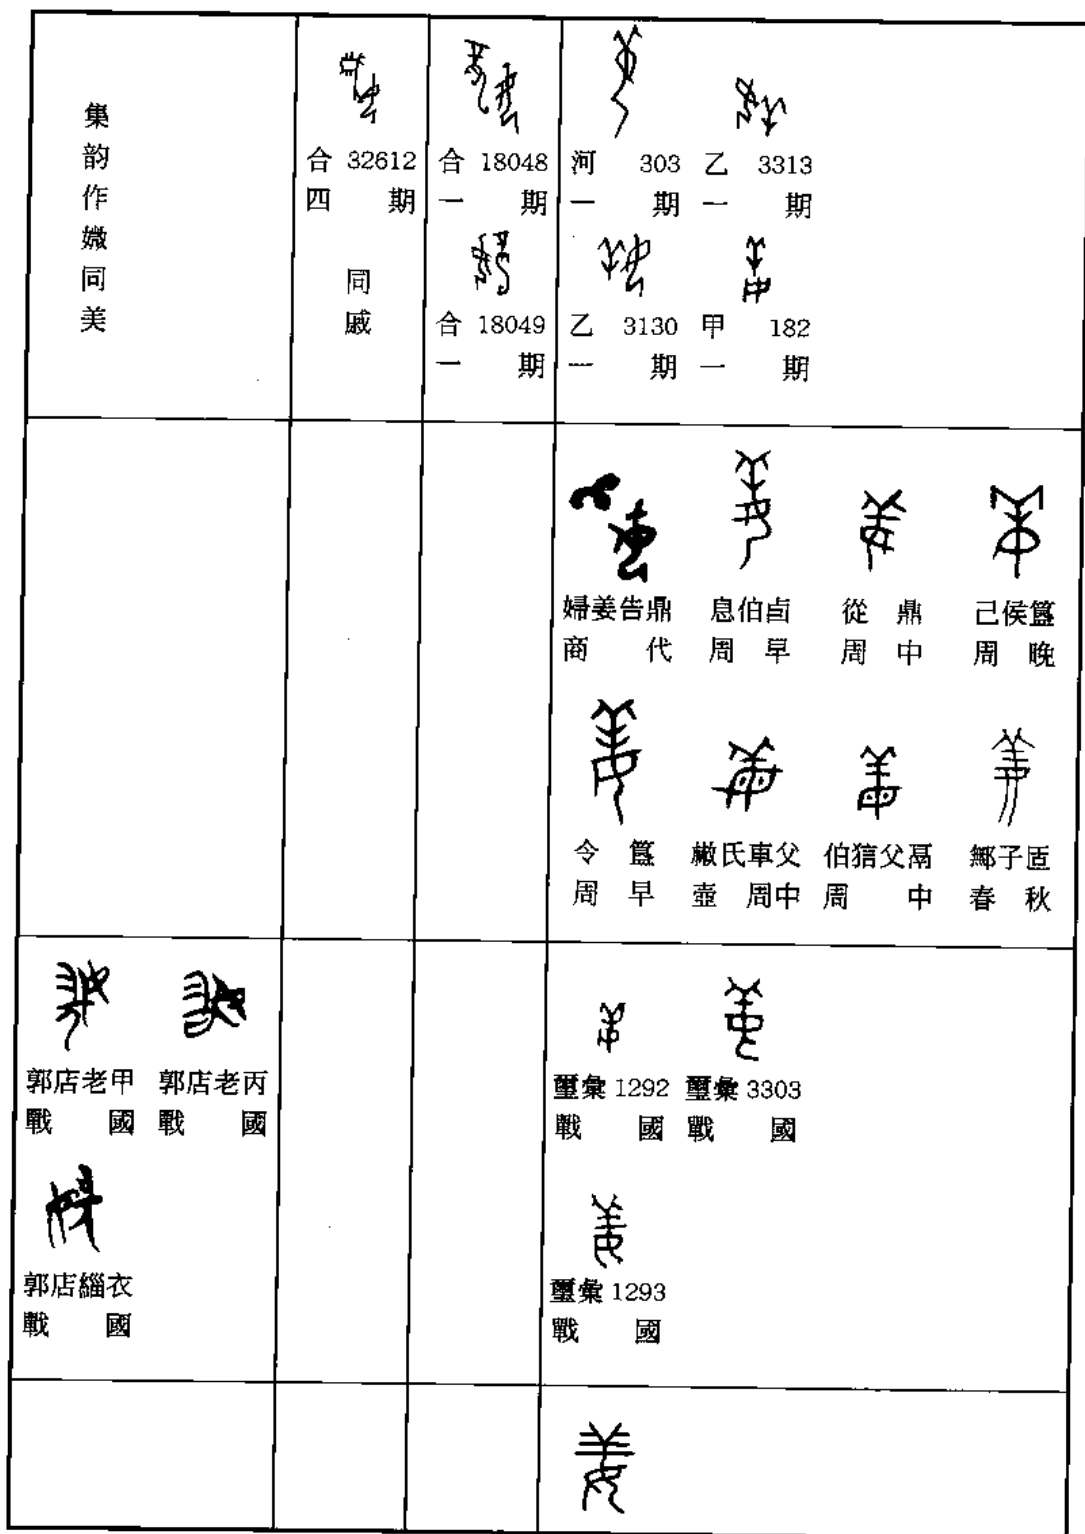 集韵作媺同美
合 32612
四期
同
合 18048
一期
合 18049
一期
河 303
一期
乙 3313
一期
乙 3130
一期
甲 182
一期
婦姜告鼎
商代
息伯卣
周早
從鼎
周中
己侯簋
周晚
令簋
周早
氏車父
壺 周中
伯狺父鬲
周中
子
春秋
郭店老甲
戰國
郭店老丙
戰國
郭店緇衣
戰國
璽彙 1292
戰國
璽彙 3303
戰國
璽彙 1293
戰國